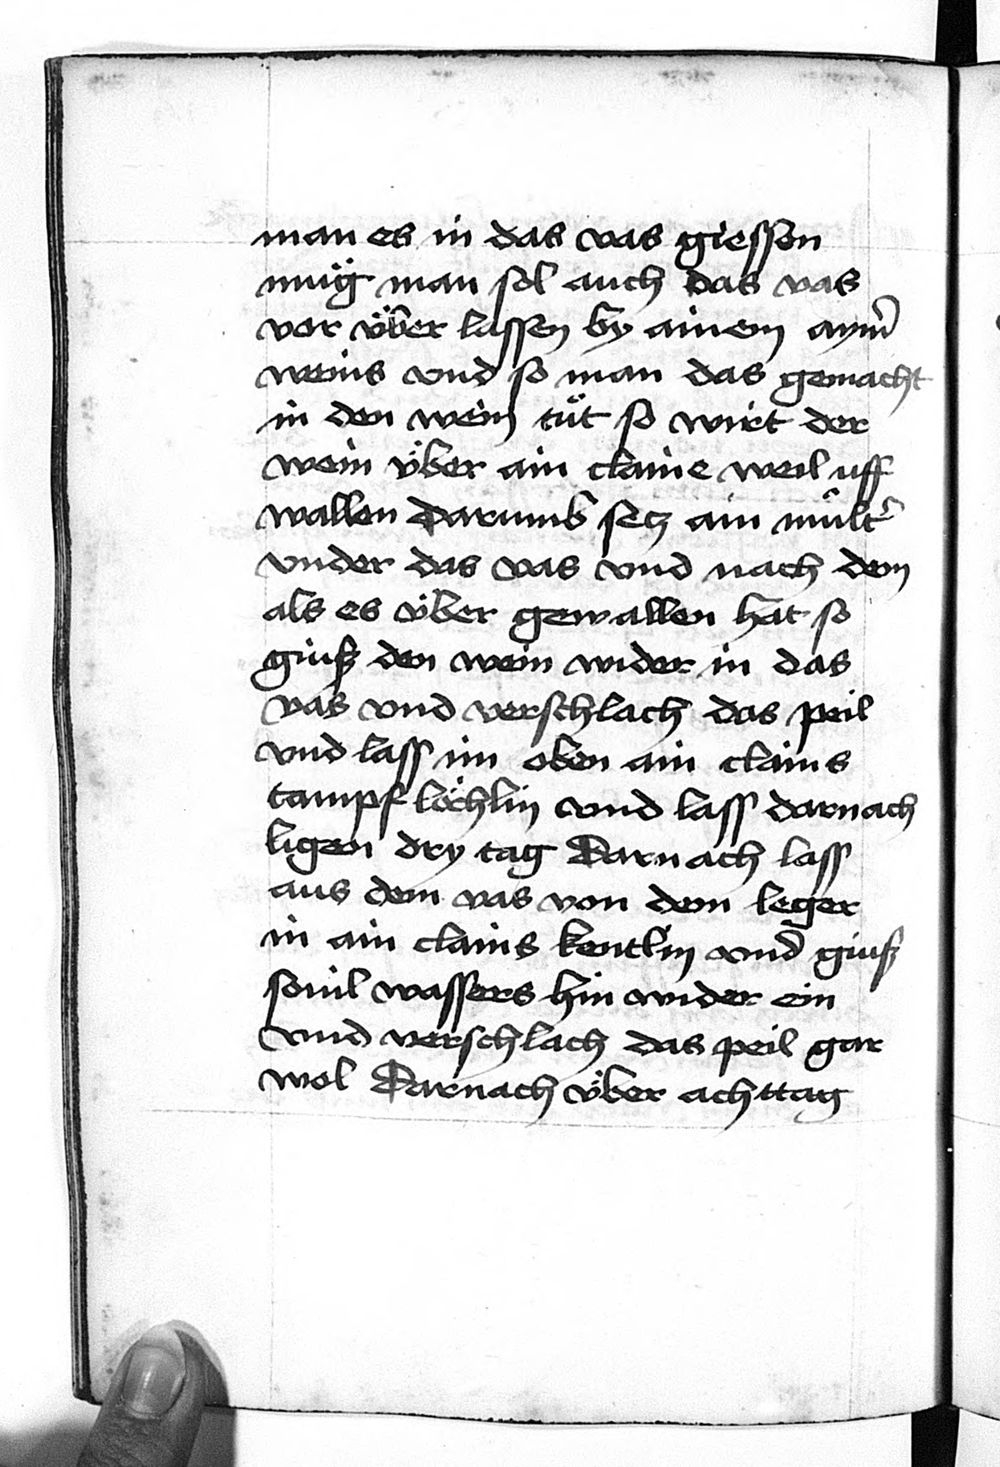 man es in das vas giessen
müg man sol auch das vas
vor v̈ber lassen by ainem aym̄
weins vnd so man das gemacht
in den wein tu̍t so wirt der
wein v̈ber ain claine weil uff
wallen Darumb setz ain mu̍lt̄
vnder das vas vnd nach dem
als es v̈ber gewallen hat so
giuß den wein wider in das
vas vnd verschlach das peil
vnd lass im oben ain clains
tampf löchlin vnd lass darnach
ligen dry tag Darnach lass
aus dem vas von dem leger
in ain clains kentlin vnd giuß
souil wassers hin wider ein
vnd verschlach das peil gar
wol Darnach v̈ber acht tag